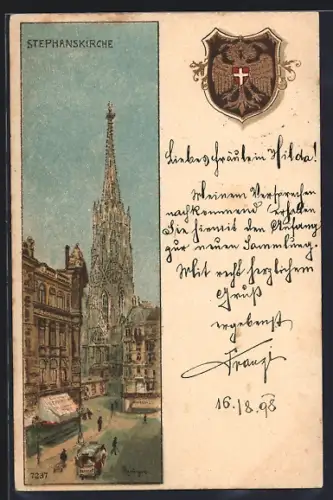 STEPHANSKIRCHE
Liebes Fräulein Hilda!
Meinem Versprechen
nachkommend erhalten
Sie hiermit den Anfang
zur neuen Sammlung.
Mit recht herzlichem
Gruß
ergebenst
Franzl
16./8.98
7237